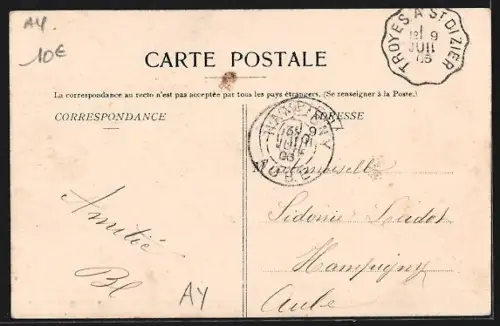 AY
10€
TROYES A ST DIZIER
9
JUIL
05
CARTE POSTALE
La correspondance au recto n'est pas acceptée par tous les pays étrangers. (Se renseigner à la Poste.)
CORRESPONDANCE
ADRESSE
9
AUBE
Mademoiselle
Sidonie
Hampigny
Aube
Amitié
Bl
AY